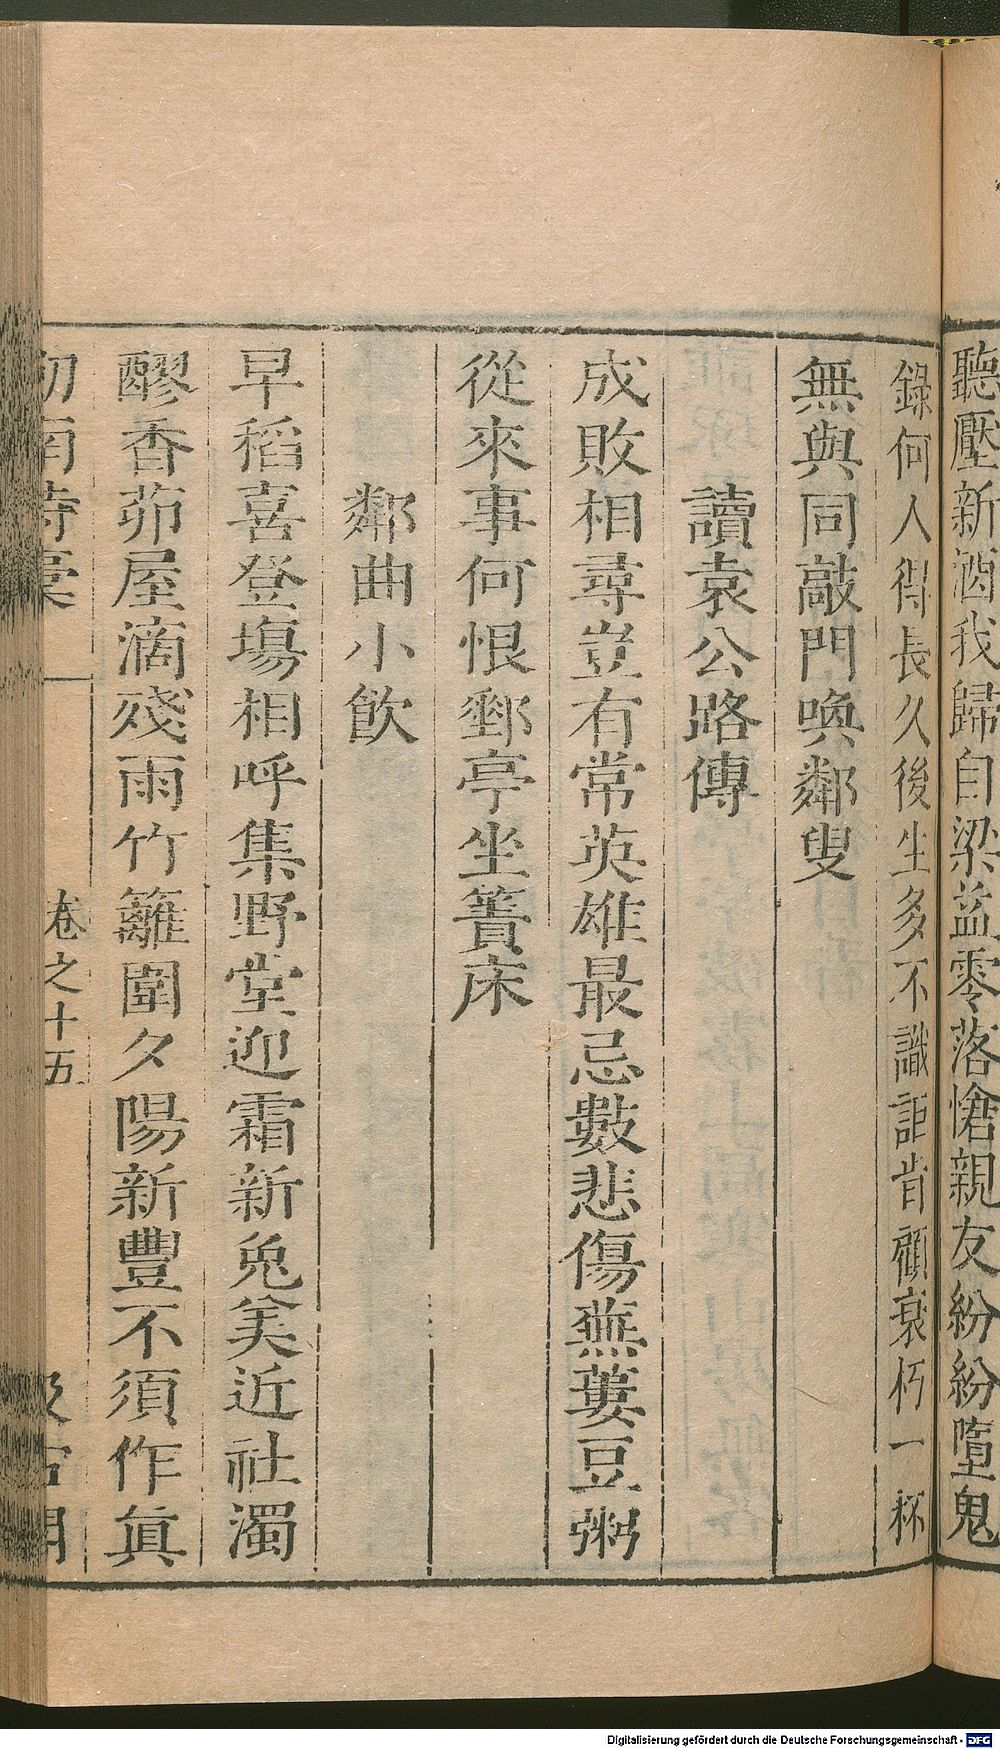 聽壓新酒我歸自梁益零落愴親友紛紛墮鬼
錄何人得長久後生多不識詎肯顧衰朽一杯
無與同敲門喚鄰叟
讀袁公路傳
成敗相尋豈有常英雄最忌數悲傷蕪蔞豆粥
從來事何恨郵亭坐簀床
鄰曲小飲
早稻喜登場相呼集野堂迎霜新兎美近社濁
醪香茆屋滴殘雨竹籬圍夕陽新豐不須作眞
劒南詩稾 卷之十五 汲古閣
Digitalisierung gefördert durch die Deutsche Forschungsgemeinschaft - DFG